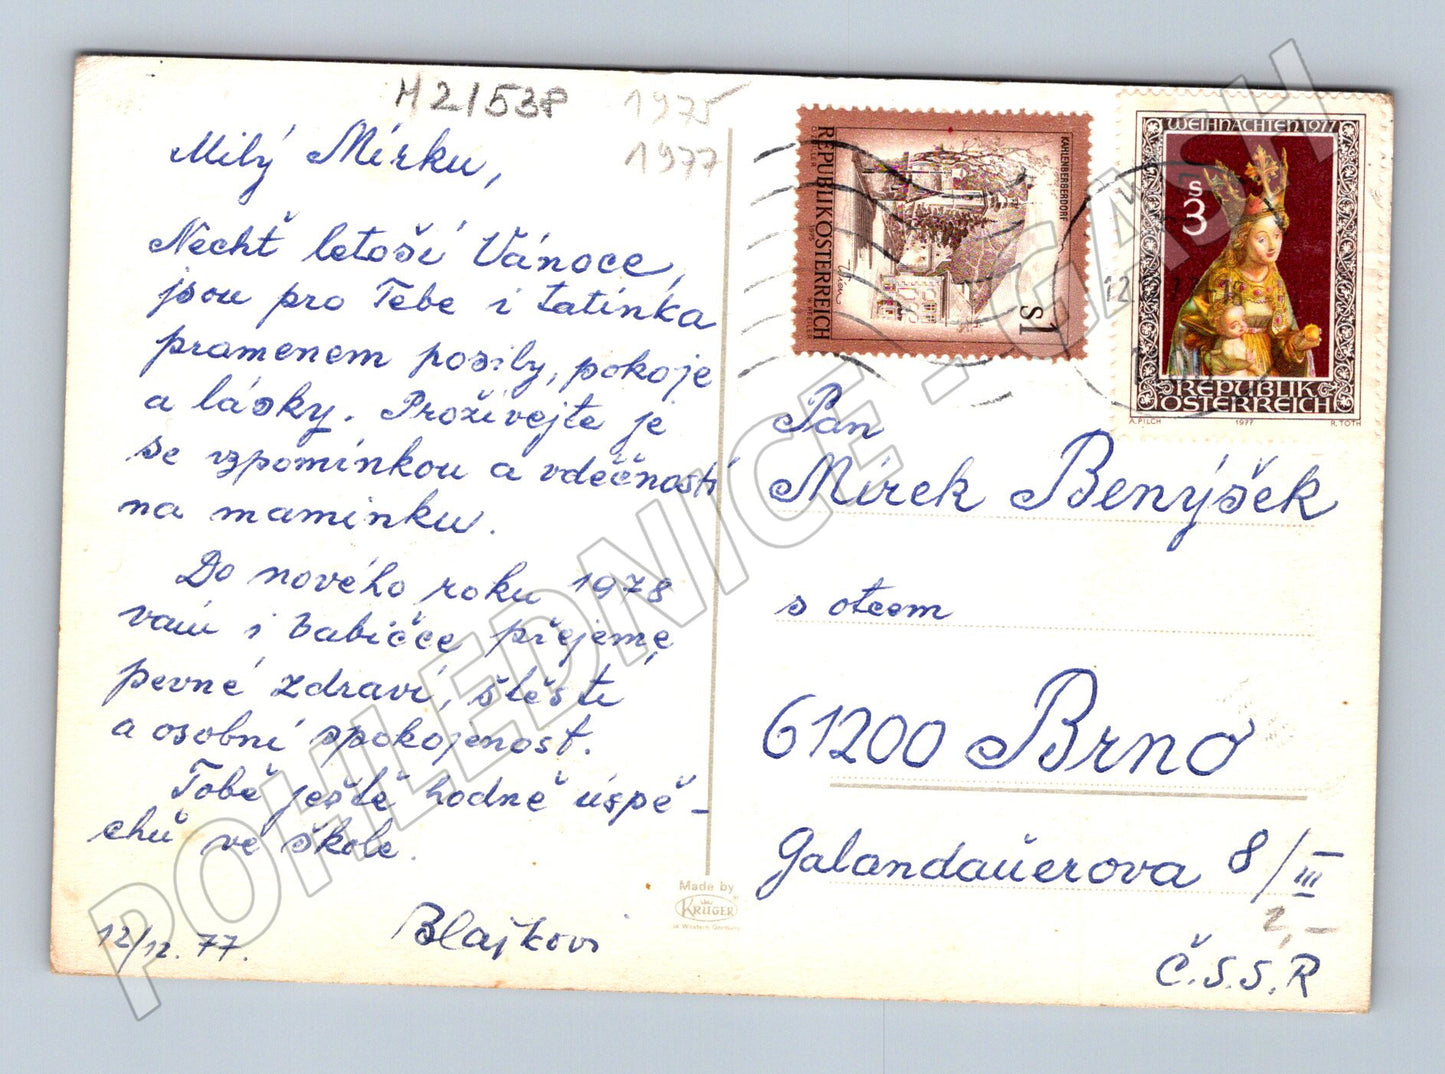 H21538
1975
1977
Milý Mírku,
Nechť letoší Vánoce,
jsou pro Tebe i tatínka
pramenem posily, pokoje
a lásky. Prožívejte je
se vzpomínkou a vděčností
na maminku.
Do nového roku 1978
vám i babičce přejeme
pevné zdraví, štěstí
a osobní spokojenost.
Tobě ještě hodně úspě-
chů ve škole.
Blajkovi
12/12. 77.
REPUBLIK ÖSTERREICH
KAHLENBERGERDORF
s1
WEIHNACHTEN 1977
S
3
REPUBLIK
ÖSTERREICH
A. PILCH 1977 R. TOTH
12.
Pan
Mírek Benýšek
s otcem
61200 Brno
Galandauerova 8/III
2,-
Č.S.S.R
Made by
KRÜGER
in Western Germany
POHLEDNICE - GASH